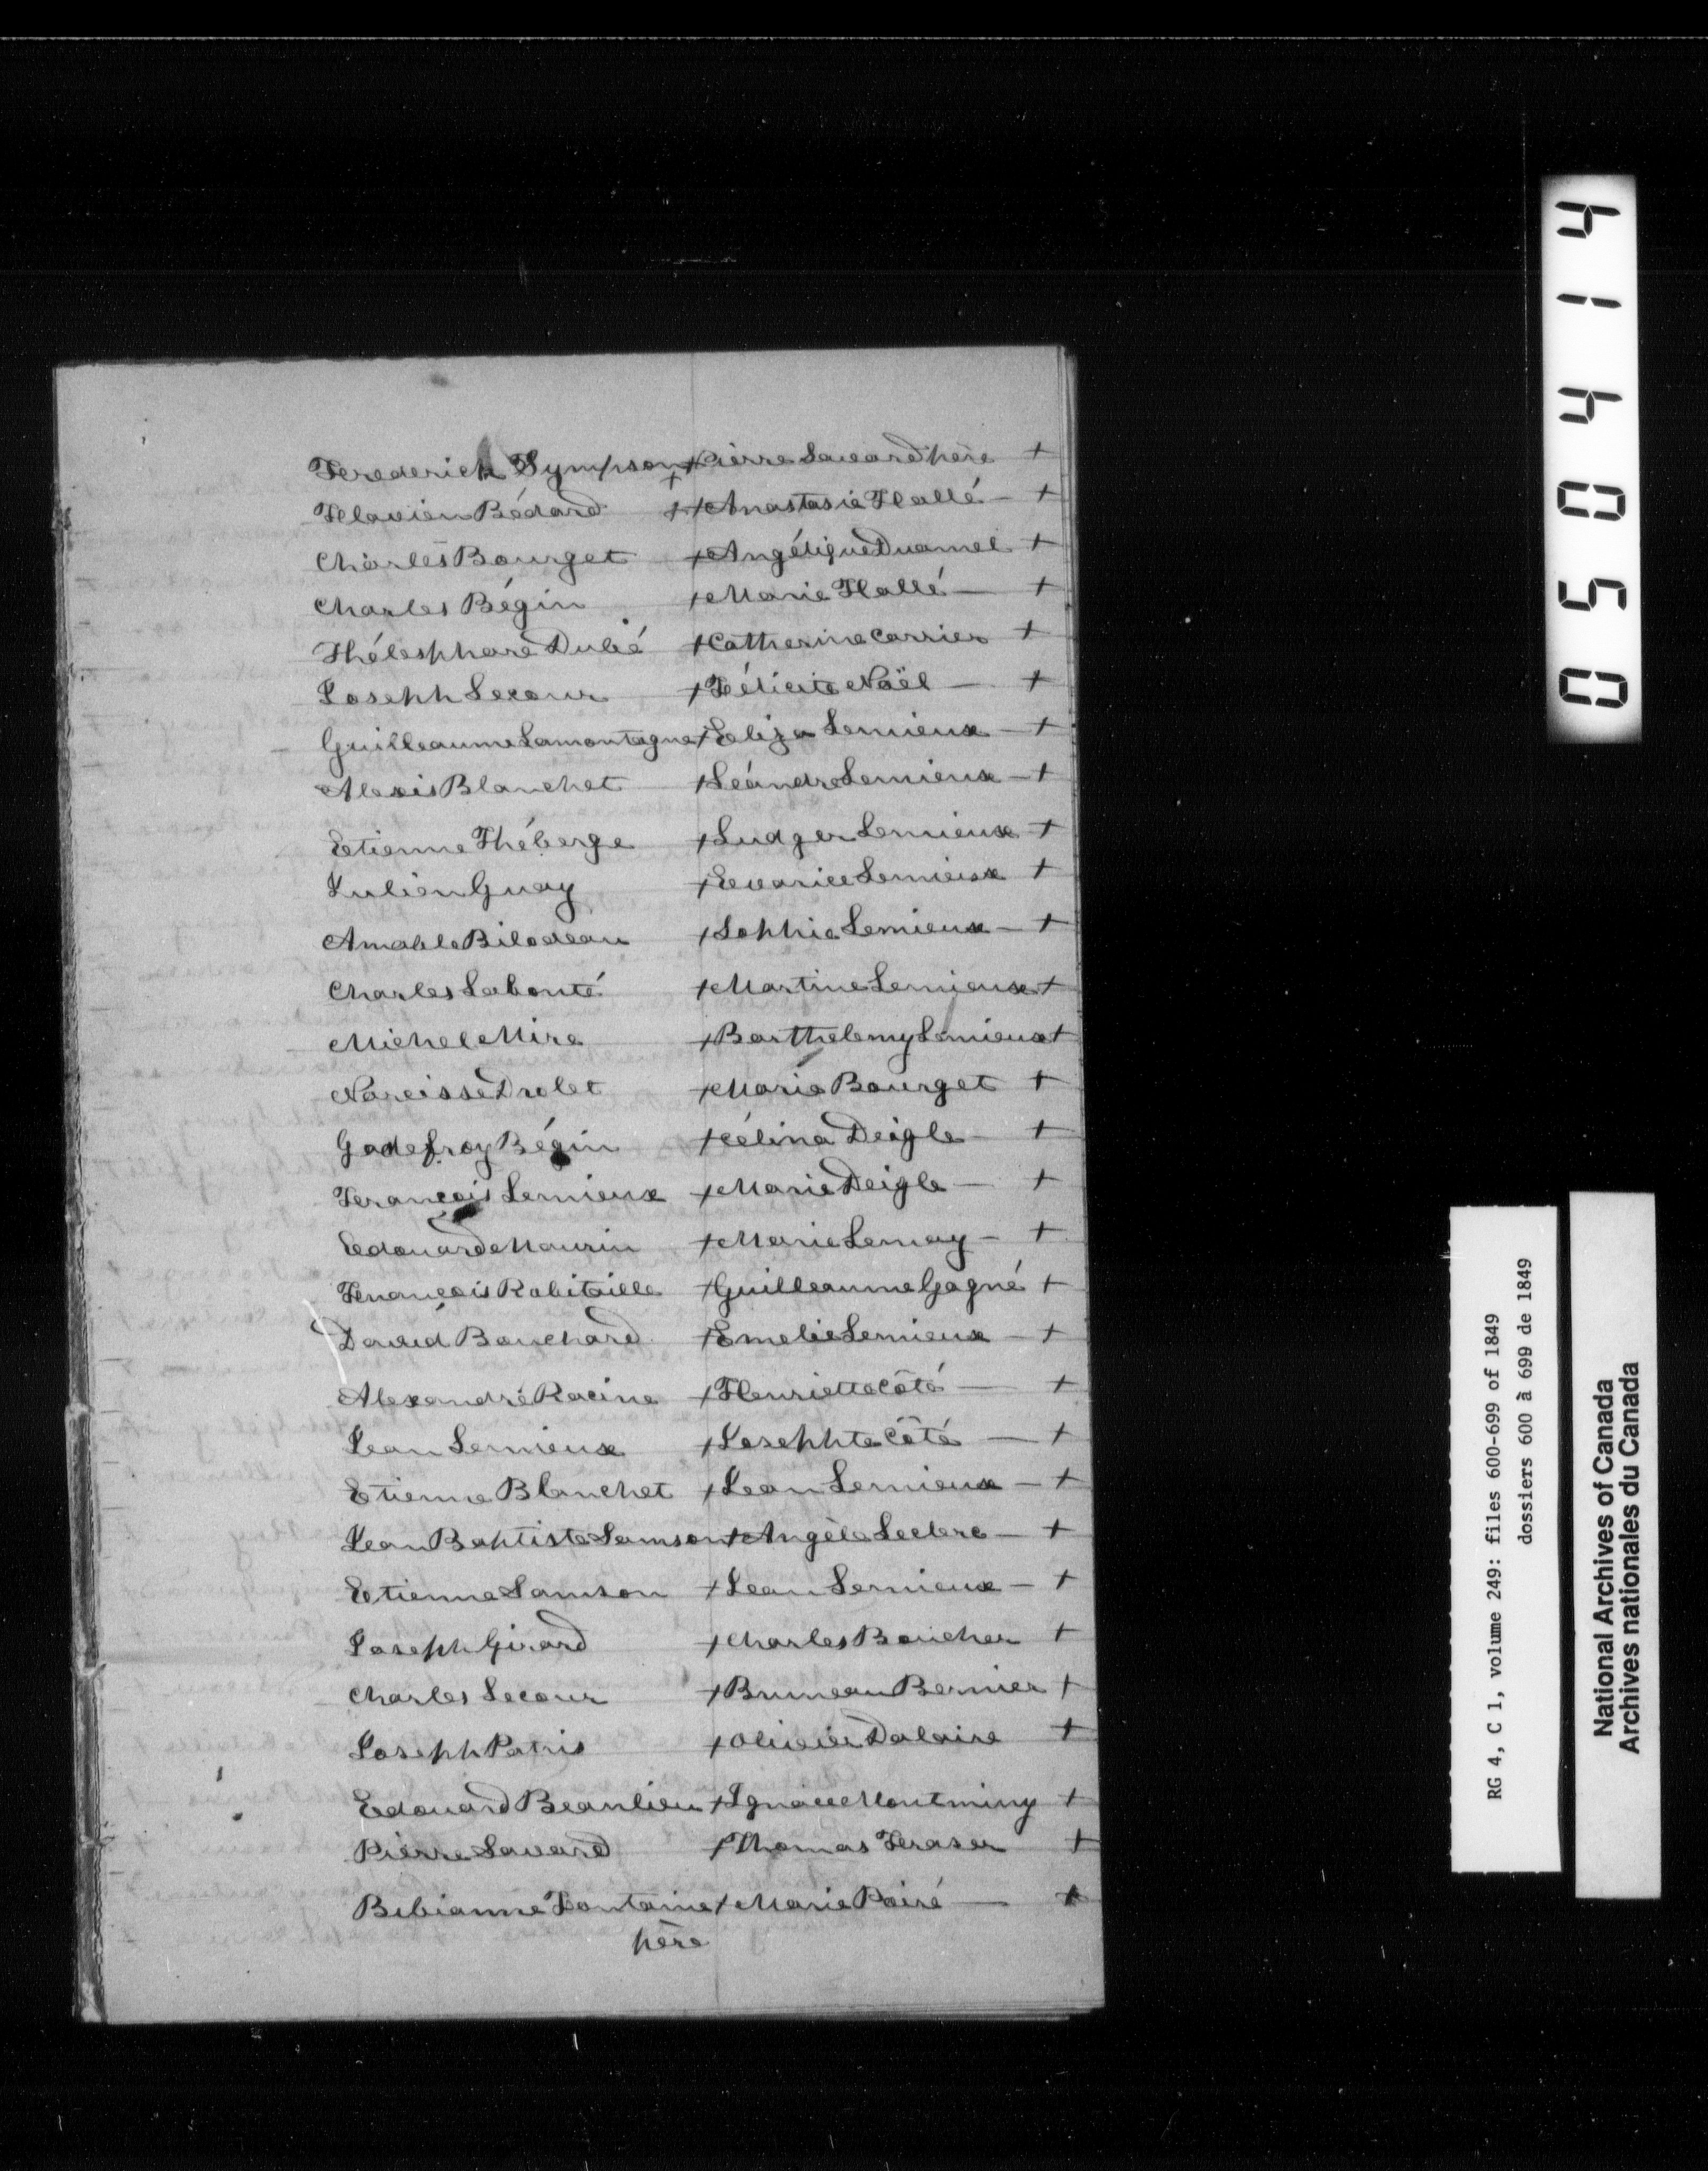 Frederich Sympson + Pierre Savard père +
Flavien Bédard ++ Anastasie Hallé — +
Charles Bourget + Angélique Duamel +
Charles Bégin + Marie Hallé — +
Thélesphore Dubé + Catherine Carrier +
Joseph Lecour + Félicité Noël — +
Guilleaume Lamontagne + Eliza Lemieux — +
Alexis Blanchet + Léandre Lemieux — +
Etienne Théberge + Ludger Lemieux +
Julien Guay + Evarice Lemieux +
Amable Bilodeau + Sophie Lemieux — +
Charles Labonté + Martine Lemieux +
Michel Mire + Barthelemy Lemieux +
Narcisse Drolet + Marie Bourget +
Godefroy Bégin + Célina Deigle — +
François Lemieux + Marie Deigle — +
Edouard Mourin + Marie Lemay — +
François Robitaille + Guilleaume Gagné +
David Bouchard + Emelie Lemieux — +
Alexandre Racine + Henriette Côté — +
Jean Lemieux + Josephte Côté — +
Etienne Blanchet + Jean Lemieux — +
Jean Baptiste Samson + Angèle Leclerc — +
Etienne Samson + Jean Lemieux — +
Joseph Girard + Charles Boucher +
Charles Lecour + Bruneau Bernier +
Joseph Patris + Olivier Dalaire +
Edouard Beaulieu + Ignace Montminy +
Pierre Savard + Thomas Fraser +
Bibianne Fontaine + Marie Poiré — +
père
050414
RG 4, C 1, volume 249: files 600-699 of 1849
dossiers 600 à 699 de 1849
National Archives of Canada
Archives nationales du Canada